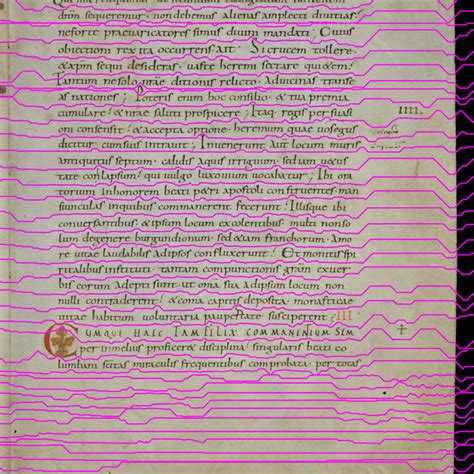 dim sequeremur · non debemus alienas amplecti diuitias,
ne forte preuaricatores simus diuini mandati; Cuius
obiectioni rex ita occurrens ait · Si crucem tollere ·
& xp̄m sequi desideras · uaste heremi sectare quietem ·
Tantum ne solo nr̄ae ditionis relicto · Ad uicinas transe
as nationes; Poteris enim hoc consilio · & tua premia
cumulare · & nr̄ae saluti prospicere; Itaq· regis persuasi
oni consensit · & accepta optione · heremum quae uosegus
IIII.
dicitur cum suis intrauit; Inuenerunt aut locum muris
antiquitus septum · calidis aquis irriguum · sed iam uetus
tate conlapsum · qui uulgo luxouium uocabatur; Ibi ora
torium in honorem beati petri apostoli construentes · man
siunculas in quibus commanerent fecerunt; Illisque ibi
conuersantibus · & ipsum locum excolentibus · multi non so
lum de genere burgundionum · sed & iam francorum · Amo
re uitae laudabilis ad ipsos confluxerunt; Et monitis spi
ritalibus instituti · tantam compunctionis gr̄am exuer
bis eorum adepti sunt · ut omia sua ad ipsum locum non
nulli contraderent; & coma capitis deposita · monasticae
uitae habitum uoluntaria paupertate susciperent; III
CUMQUE HAEC TAM FELIX COMMANENTIUM SEM
per in melius proficeret disciplina · singularis beati co
lumbani sc̄itas miraculis frequentibus comprobata · per totas